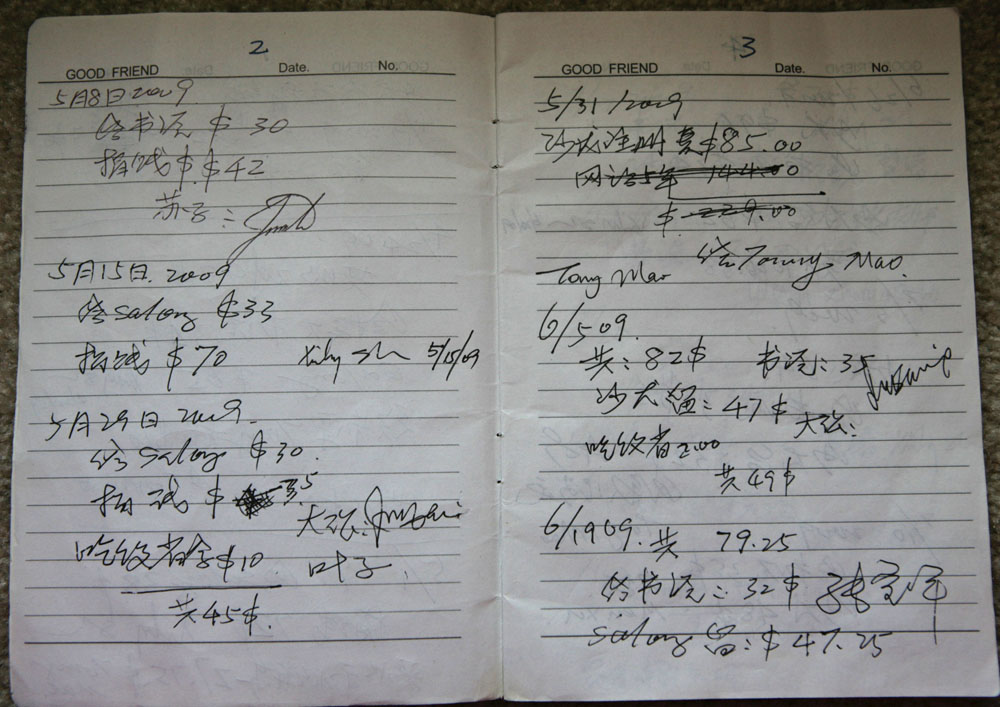 2
GOOD FRIEND Date. No.
5月8日 2009
给书院 $30
捐钱 $ $42
苏子:
5月15日. 2009
给Salong $33
捐钱 $70 5/15/09
5月29日 2009.
给Salong $30.
捐钱 $ 35
大弦:
吃饭者舍$10 叶子.
共45$.
3
GOOD FRIEND Date. No.
5/31/2009
沙龙注册费$85.00
网站5年 144.00
$ 229.00
Tong Mao 给Tommy Mao.
6/5 09.
共: 82$ 书院: 35
沙龙留: 47$ 大弦:
吃饭者2.00
共49$
6/19 09. 共 79.25
给书院: 32$
Salong 留: $47.25